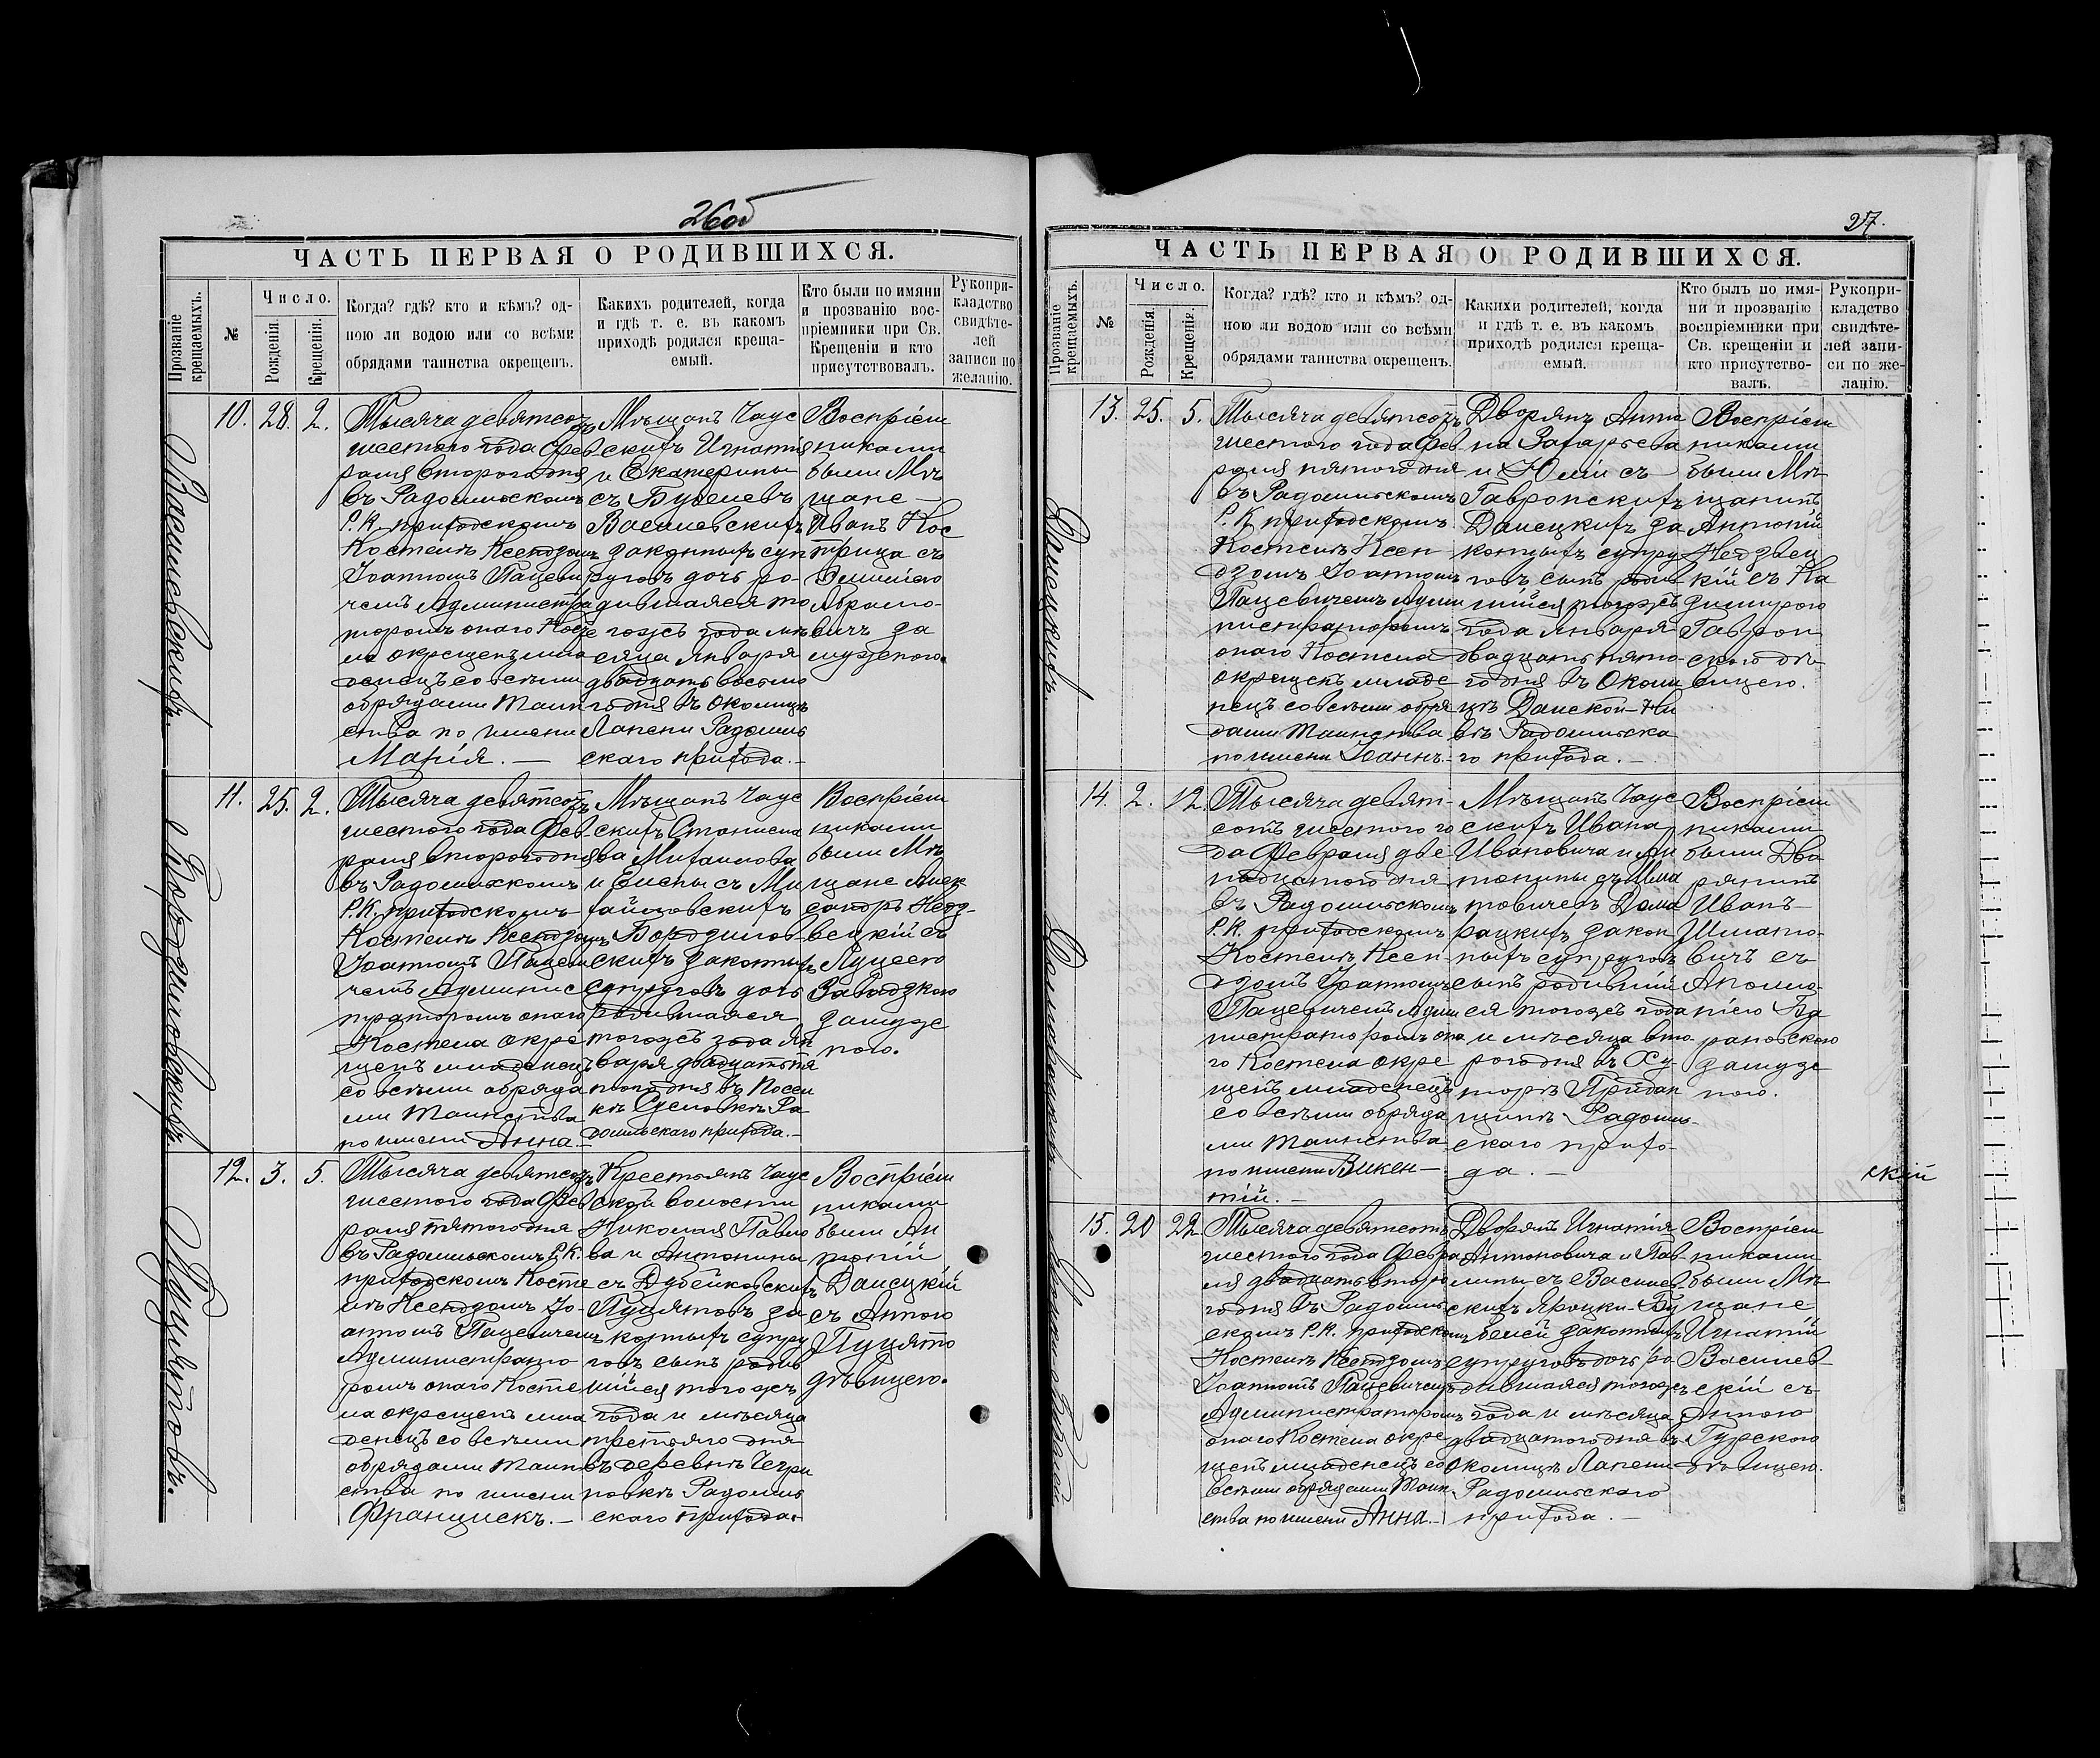 26об
ЧАСТЬ ПЕРВАЯ О РОДИВШИХСЯ.
Прозваніе крещаемыхъ.
№
Число.
Рожденія.
Крещенія.
Когда? гдѣ? кто и кѣмъ? од-
ною ли водою или со всѣми
обрядами таинства окрещенъ.
Какихъ родителей, когда
и гдѣ т. е. въ какомъ
приходѣ родился креща-
емый.
Кто были по имяни
и прозванію вос-
пріемники при Св.
Крещеніи и кто
присутствовалъ.
Рукопри-
кладство
свидѣте-
лей
записи по
желанію.
Василевскихъ.
10. 28. 2.
Тысяча девятсотъ
шестого года Фев
раля второго дня
въ Радомльскомъ
Р. К. приходскомъ
Костелѣ Ксендзомъ
Іоанномъ Пацеви
чемъ Администра
торомъ онаго Косте
ла окрещенъ мла
денецъ со всѣми
обрядами Таин
ства по имени
Марія. —
Мѣщанъ Чаус
скихъ Игнатія
и Екатерины
съ Бубелевъ
Василевскихъ
законныхъ суп
руговъ дочь ро-
дившаяся то
гожъ года мѣ
сяца Января
двадцать восьмо
го дня въ околицѣ
Лапени Радомль
скаго прихода. —
Воспріем
никами
были Мѣ
щане —
Иванъ Кос
трица съ
Эмиліею
Абрамо-
вичъ за
мужнею.
Бордиловскихъ.
11. 25. 2.
Тысяча девятсотъ
шестого года Фев
раля второго дня
въ Радомльскомъ
Р. К. приходскомъ
Костелѣ Ксендзомъ
Іоанномъ Пацеви
чемъ Админис
траторомъ онаго
Костела окре
щенъ младенецъ
со всѣми обряда
ми Таинства
по имени Анна. —
Мѣщанъ Чаус
скихъ Станисла
ва Михайлова
и Елены съ Ми
хайловскихъ
Бордилов-
скихъ законныхъ
супруговъ дочь
родившаяся
тогожъ года Ян
варя двадцать пя
того дня въ посел
кѣ
Радомльскаго прихода. —
Воспріем
никами
были Мѣ
щане Алек
сандръ Недз-
вецкій съ
Луцеею
замуж
нею.
Пуцятовъ.
12. 3. 5.
Тысяча девятсотъ
шестого года Фев
раля пятого дня
въ Радомльскомъ Р. К.
приходскомъ Косте
лѣ Ксендзомъ Іо-
анномъ Пацевичемъ
Администрато
ромъ онаго Косте
ла окрещенъ мла
денецъ со всѣми
обрядами Таин
ства по имени
Францискъ. —
Крестьянъ Чаус
ской волости
Николая Павло
ва и Антонины
съ Дубейковскихъ
Пуцятовъ за
конныхъ супру
говъ сынъ родив
шійся тогожъ
года и мѣсяца
третьяго дня
въ деревнѣ Чери
новкѣ Радомль
скаго прихода.
Воспріем
никами
были Ан
тоній
Данецкій
съ Анною
Пуцято
дѣвицею.
27.
ЧАСТЬ ПЕРВАЯ О РОДИВШИХСЯ.
Прозваніе крещаемыхъ.
№
Число.
Рожденія.
Крещенія.
Когда? гдѣ? кто и кѣмъ? од-
ною ли водою или со всѣми
обрядами таинства окрещенъ.
Какихи родителей, когда
и гдѣ т. е. въ какомъ
приходѣ родился креща-
емый.
Кто былъ по имя-
ни и прозванію
воспріемники при
Св. крещеніи и
кто присутство-
валъ.
Рукопри-
кладство
свидѣте-
лей запи-
си по же-
ланію.
Данецкихъ.
13. 25. 5.
Тысяча девятсотъ
шестого года Фев-
раля пятого дня
въ Радомльскомъ
Р. К. приходскомъ
Костелѣ Ксен
дзомъ Іоанномъ
Пацевичемъ Адми
нистраторомъ
онаго Костела
окрещенъ младе
нецъ со всѣми обря
дами Таинства
по имени Іоаннъ. —
Дворянъ Анто
на Захарьева
и Юліи съ
Гавронскихъ
Данецкихъ за
конныхъ супру
говъ сынъ родив
шійся тогожъ
года Января
двадцать пято-
го дня въ Околи
цѣ Данской-Ни
вѣ Радомльска
го прихода. —
Воспріем
никами
были Мѣ
щанинъ
Антоній
Недзвец
кій съ Ка
зимирою
Гаврон
скою дѣ-
вицею.
14. 2. 12.
Тысяча девят-
сотъ шестого го
да Февраля две
надцатого дня
въ Радомльскомъ
Р. К. приходскомъ
Костелѣ Ксен-
дзомъ Іоанномъ
Пацевичемъ Адми
нистраторомъ она
го Костела окре
щенъ младенецъ
со всѣми обряда
ми Таинства
по имени Викен —
тій. —
Мѣщанъ Чаус
скихъ Ивана
Ивановича и Ан
тонины съ Шма
товичевъ Дома
рацкихъ закон
ныхъ супруговъ
сынъ родившій
ся тогожъ года
и мѣсяца вто
рого дня въ Ху-
торѣ
Радомль-
скаго прихо-
да. —
Воспріем
никами
были Дво
рянинъ
Иванъ —
Шмато-
вичъ съ
Аполло-
ніею Ба
рановскою
замуж
нею.
скій
15. 20 22
Тысяча девятсотъ
шестого года Февра
ля двадцать второ
го дня въ Радомль
скомъ Р. К. приходскомъ
Костелѣ Ксендзомъ
Іоанномъ Пацевичемъ
Администраторомъ
онаго Костела окре
щенъ младенецъ со
всѣми обрядами Таин
ства по имени Анна. —
Дворянъ Игнатія
Антоновича и Пав-
лины съ Василев-
скихъ Яроцки-Бу
белей законныхъ
супруговъ дочь ро
дившаяся тогожъ
года и мѣсяца
двадцатого дня въ
околицѣ Лапени
Радомльскаго
прихода. —
Воспріем
никами
были Мѣ
щане
Игнатій
Василев-
скій съ
Анною
Гурскою
дѣвицею.